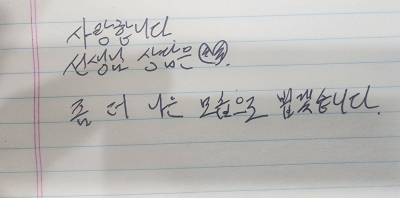 사랑합니다
선생님 상담은
좀 더 나은 모습으로 뵙겠습니다.